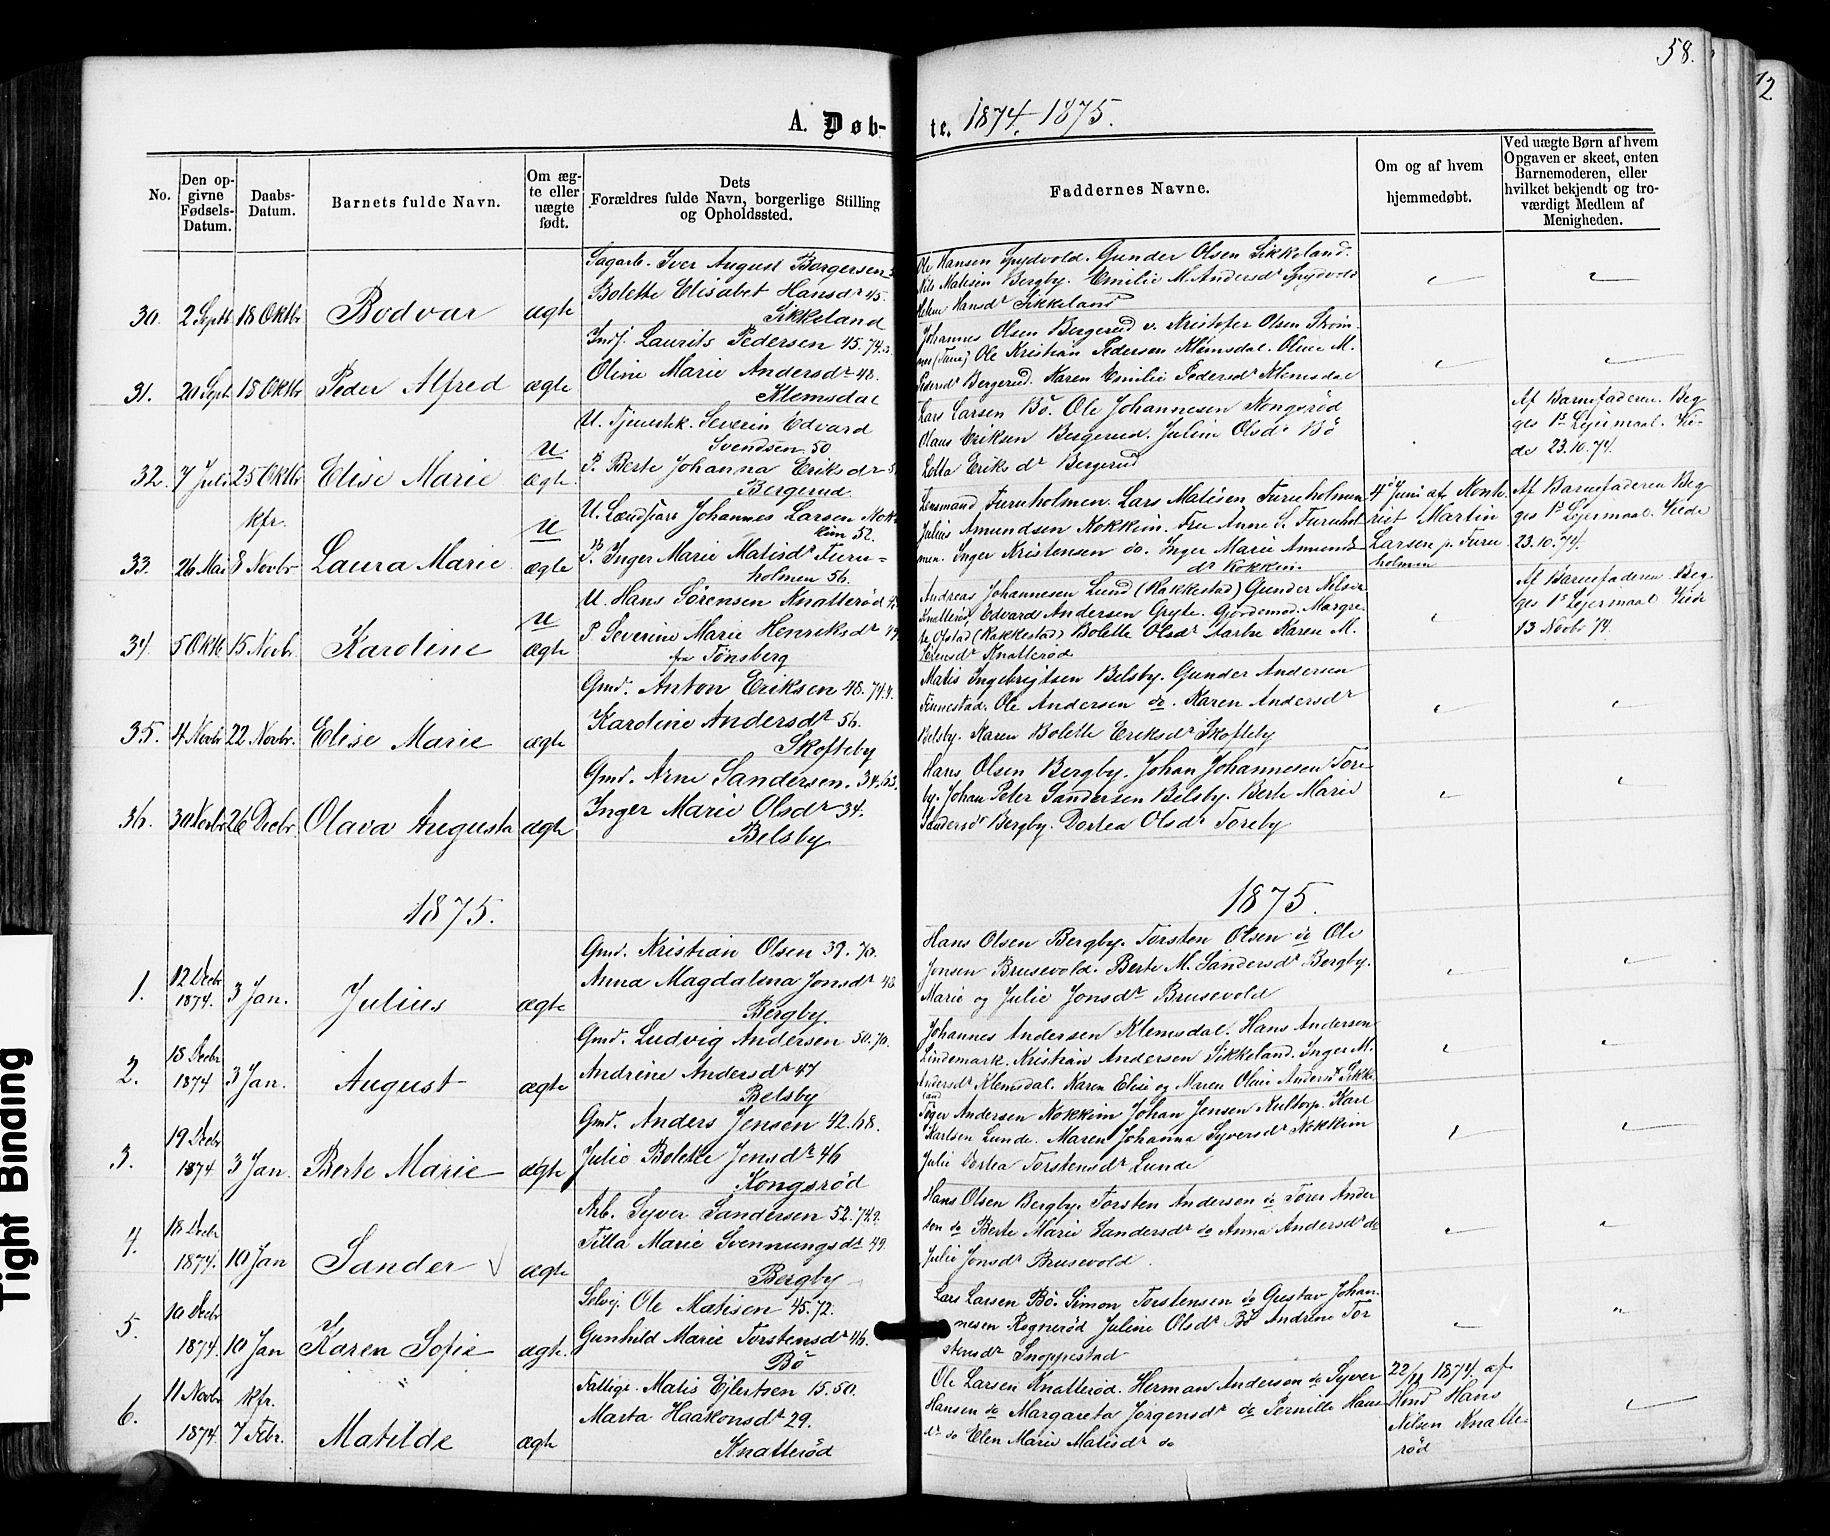 58.
12
A. Døb-
te. 1874. 1875.
No.
Den op-
givne
Fødsels-
Datum.
Daabs-
Datum.
Barnets fulde Navn.
Om æg-
te eller
uægte
født.
Dets
Forældres fulde Navn, borgerlige Stilling
og Opholdssted.
Faddernes Navne.
Om og af hvem
hjemmedøbt.
Ved uægte Børn af hvem
Opgaven er skeet, enten
Barnemoderen, eller
hvilket bekjendt og tro-
værdigt Medlem af
Menigheden.
30. 2 Septb 18 Oktbr Bodvar ægte
Sagarb. Iver August Borgersen
Bolette Elisabet Hansdr 45.
Sikkeland
Ole Hansen Spydvold. Gunder Olsen Sikkeland.
Nils Matisen Bergby. Emilie M. Andersdr Spydvold
Helene Hansdr Sikkeland
31. 20 Sept. 18 Oktbr Peder Alfred ægte
Indj. Laurits Pedersen 45. 74.
Oline Marie Andersdr 48.
Klemsdal
Johannes Olsen Bergerud v. Kristofer Olsen Strøm-
nes (Tune) Ole Kristian Pedersen Klemsdal. Oline M.
Pedersdr Bergerud. Karen Emilie Pedersdr Klemsdal
32. 7 Juli 25 Oktbr Elise Marie u ægte.
U. Tjenestek. Severin Edvard
Svendsen 50
P. Berte Johanna Eriksdr
Bergerud.
Lars Larsen Bö. Ole Johannesen Kongsrød
Olaus Eriksen Bergerud. Juline Olsdr Bö
Letta Eriksdr Bergerud
Af Barnefaderen. Beg-
ges 1s Lejermaal. Vi-
de 23.10.74.
33. 26 Mai kfr. 8 Novbr Laura Marie u ægte
U. Landharr Johannes Larsen Nok-
kim 52.
P. Inger Marie Matisdr Furu-
holmen 56.
Lensmand Furuholmen. Lars Matisen Furuholmen
Julius Amundsen Nokkim. Fru Anne S. Furuhol-
men. Inger Kristensen do. Inger Marie Amunds-
dr Nokkim
4 Juni af Kont-
rist Martin
Larsen p. Furu
holmen
Af Barnefaderen Beg
ges 1s Lejermaal. Vide
23.10.74.
34. 5 Oktb 15 Novbr. Karoline u ægte
U. Hans Sørensen Knatterød
P. Severine Marie Henriksdr 49
fra Tønsberg
Andreas Johannesen Lund (Rakkestad) Gunder Nilsen
Knatterød, Edvard Andersen Gryte. Gjordemod. Margre
te Opstad (Rakkestad) Bolette Olsdr Aarbu Karen M.
Knatterød
Af Barnefaderen. Beg
ges 1s Lejermaal Vide
13 Novbr 74.
35. 4 Novbr 22 Novbr. Elise Marie ægte
Gmd. Anton Eriksen 48. 74.
Karoline Andersdr 56.
Skofteby
Matis Ingebrigtsen Belsby. Gunder Andersen
Finnestad. Ole Andersen do. Karen Andersdr
Belsby. Karen Bolette Eriksdr Skofteby
36. 30 Novbr 26 Decbr. Olava Augusta ægte
Gmd. Arne Sandersen. 34. 63.
Inger Marie Olsdr 34.
Belsby
Hans Olsen Bergby. Johan Johannesen Tore
by. Johan Peter Sandersen Belsby. Berte Marie
Sandersdr Bergby. Dortea Olsdr Toreby
1875.
1875.
1. 12 Decbr 1874. 3 Jan. Julius ægte
Gmd. Kristian Olsen 39. 70.
Anna Magdalena Jonsdr 48
Bergby.
Hans Olsen Bergby. Torsten Olsen do Ole
Jonsen Brusevold. Berte M. Sandersdr Bergby.
Marie og Julie Jonsdr Brusevold
2. 18 Decbr 1874 3 Jan. August ægte
Gmd. Ludvig Andersen 50. 70.
Andrine Andersdr 47
Belsby
Johannes Andersen Klemsdal. Hans Andersen
Lindemark. Kristian Andersen Sikkeland. Inger M.
Andersdr Klemsdal. Karen Elise og Maren Oline Andersdr Sikke-
land
3. 19 Decbr 1874 3 Jan. Berte Marie ægte
Gmd. Anders Jensen 42. 68.
Julie Bolette Jensdr 46
Kongsrød
Tøger Andersen Nokkim Johan Jensen Kultorp. Karl
Karlsen Lunde. Maren Johanna Syversdr Nokkim
Julie Dortea Torstensdr Lunde
4. 18 Decbr 1874. 10 Jan Sander ægte
Arb. Syver Sandersen 52. 74.
Tilla Marie Svennungsdr 49.
Bergby
Hans Olsen Bergby. Torsten Andersen do Torer Ander
sen do Berte Marie Sandersdr do Anna Andersdr do
Julie Jonsdr Brusevold.
5. 10 Decbr 1874. 10 Jan Karen Sofie ægte.
Selvj. Ole Matisen 45. 72.
Gunhild Marie Torstensdr 46.
Bö
Lars Larsen Bö. Simon Torstensen do Gustav Johan-
nesen Rognerød Juline Olsdr Bö Andrine Tor
stensdr Snoppestad
6. 11 Novbr 1874. kfr. 7 Febr. Matilde ægte
Fattigl. Matis Ejlertsen 15. 50.
Marta Haakonsdr 29.
Knatterød
Ole Larsen Knatterød. Herman Andersen do Syver
Hansen do Margareta Jørgensdr do Pernille Hans
dr do Elen Marie Matisdr do
22/11 1874 af
Hmd Hans
Nilsen Knatte-
rød
Tight Binding